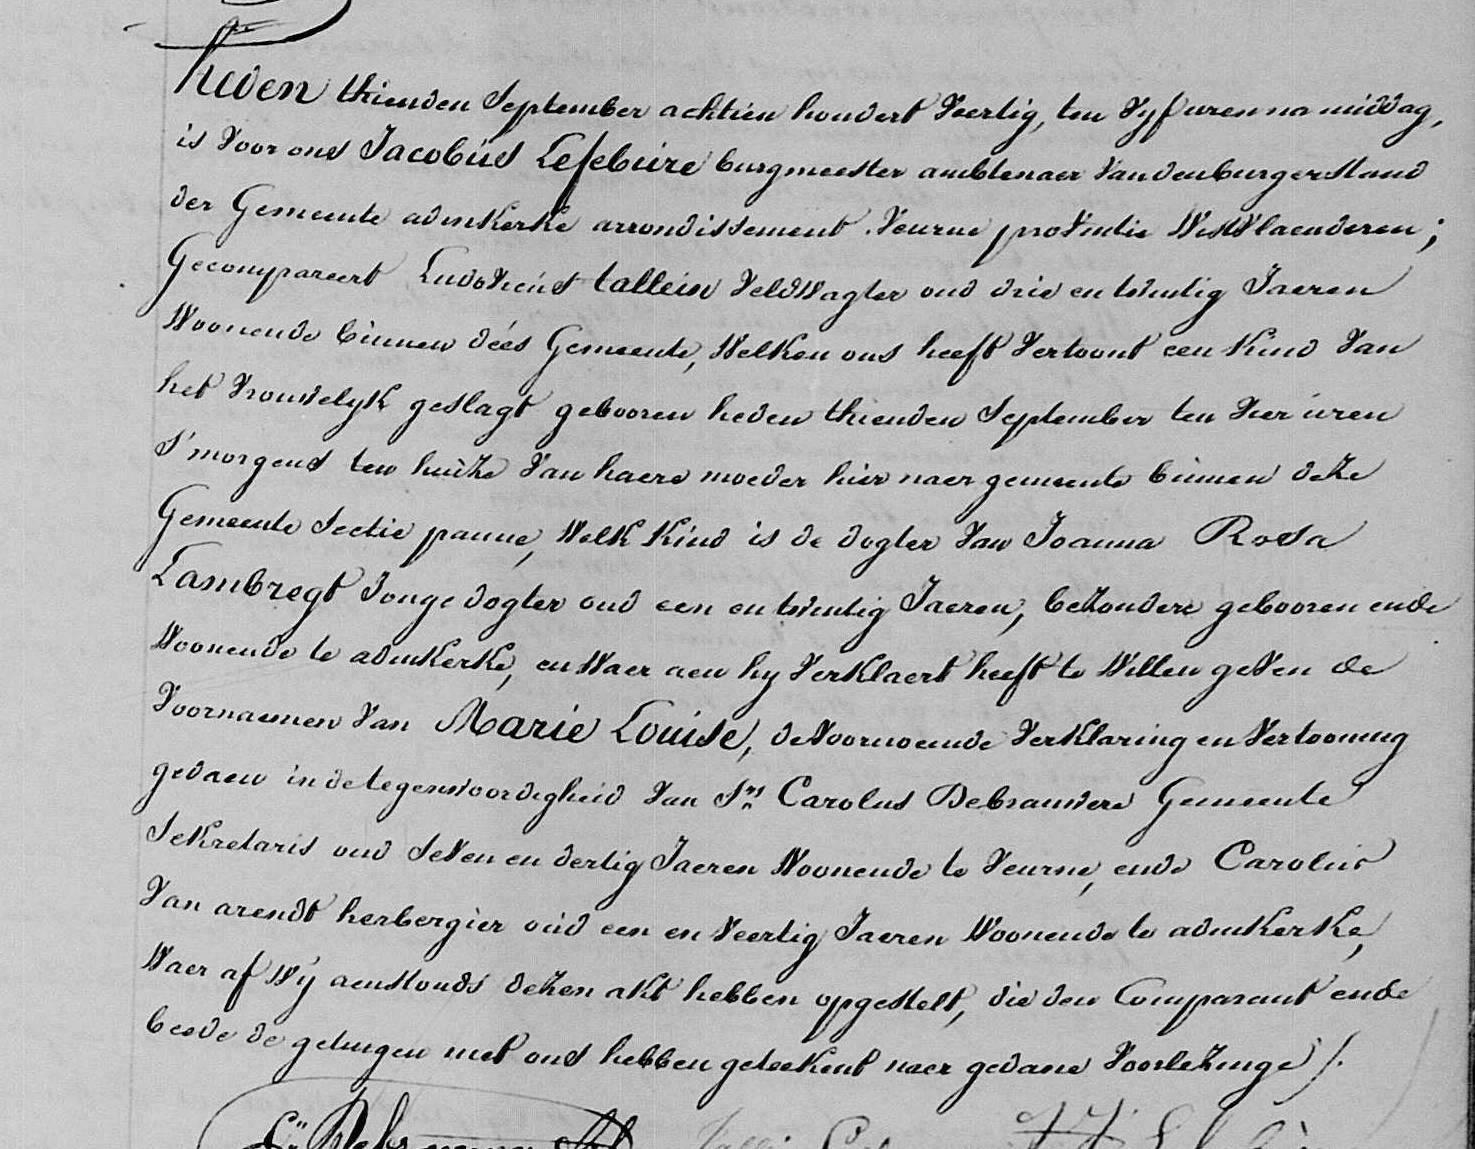 heden thienden September achtien hondert Veertig, ten Vyf uren na middag,
is Voor ons Jacobus Lefebure burgmeester ambtenaer Van den burgerstand
der Gemeente adinkerke arrondissement Veurne provintie West Vlaenderen;
Gecompareert Ludovicus tallein Veldwagter oud drie en twintig Jaeren
Woonende binnen dées Gemeente, Welken ons heeft Vertoont een kind Van
het Vrouwelyk geslagt gebooren heden thienden September ten Vier uren
S'morgens ten huize Van haere moeder hier naer gemeente binnen deze
Gemeente Sectie panne, Welk kind is de dogter Van Joanna Rosa
Lambregt Jonge dogter oud een en twintig Jaeren, bezondere gebooren ende
Woonende te adinkerke, en Waer aen hy Verklaert heeft te Willen geven de
Voornaemen Van Marie Louise, de Voornoemde Verklaring en Vertooning
gedaen in de tegenwoordigheid Van Srs Carolus Debrauwere Gemeente
Sekretaris oud Seven en dertig Jaeren Woonende te Veurne, ende Carolus
Van arendt herbergier oud een en Veertig Jaeren Woonende te adinkerke,
Waer af Wy aenstonds dezen akt hebben opgestelt, die den Comparant ende
beede de getuigen met ons hebben geteekent naer gedane Voorlezinge /.